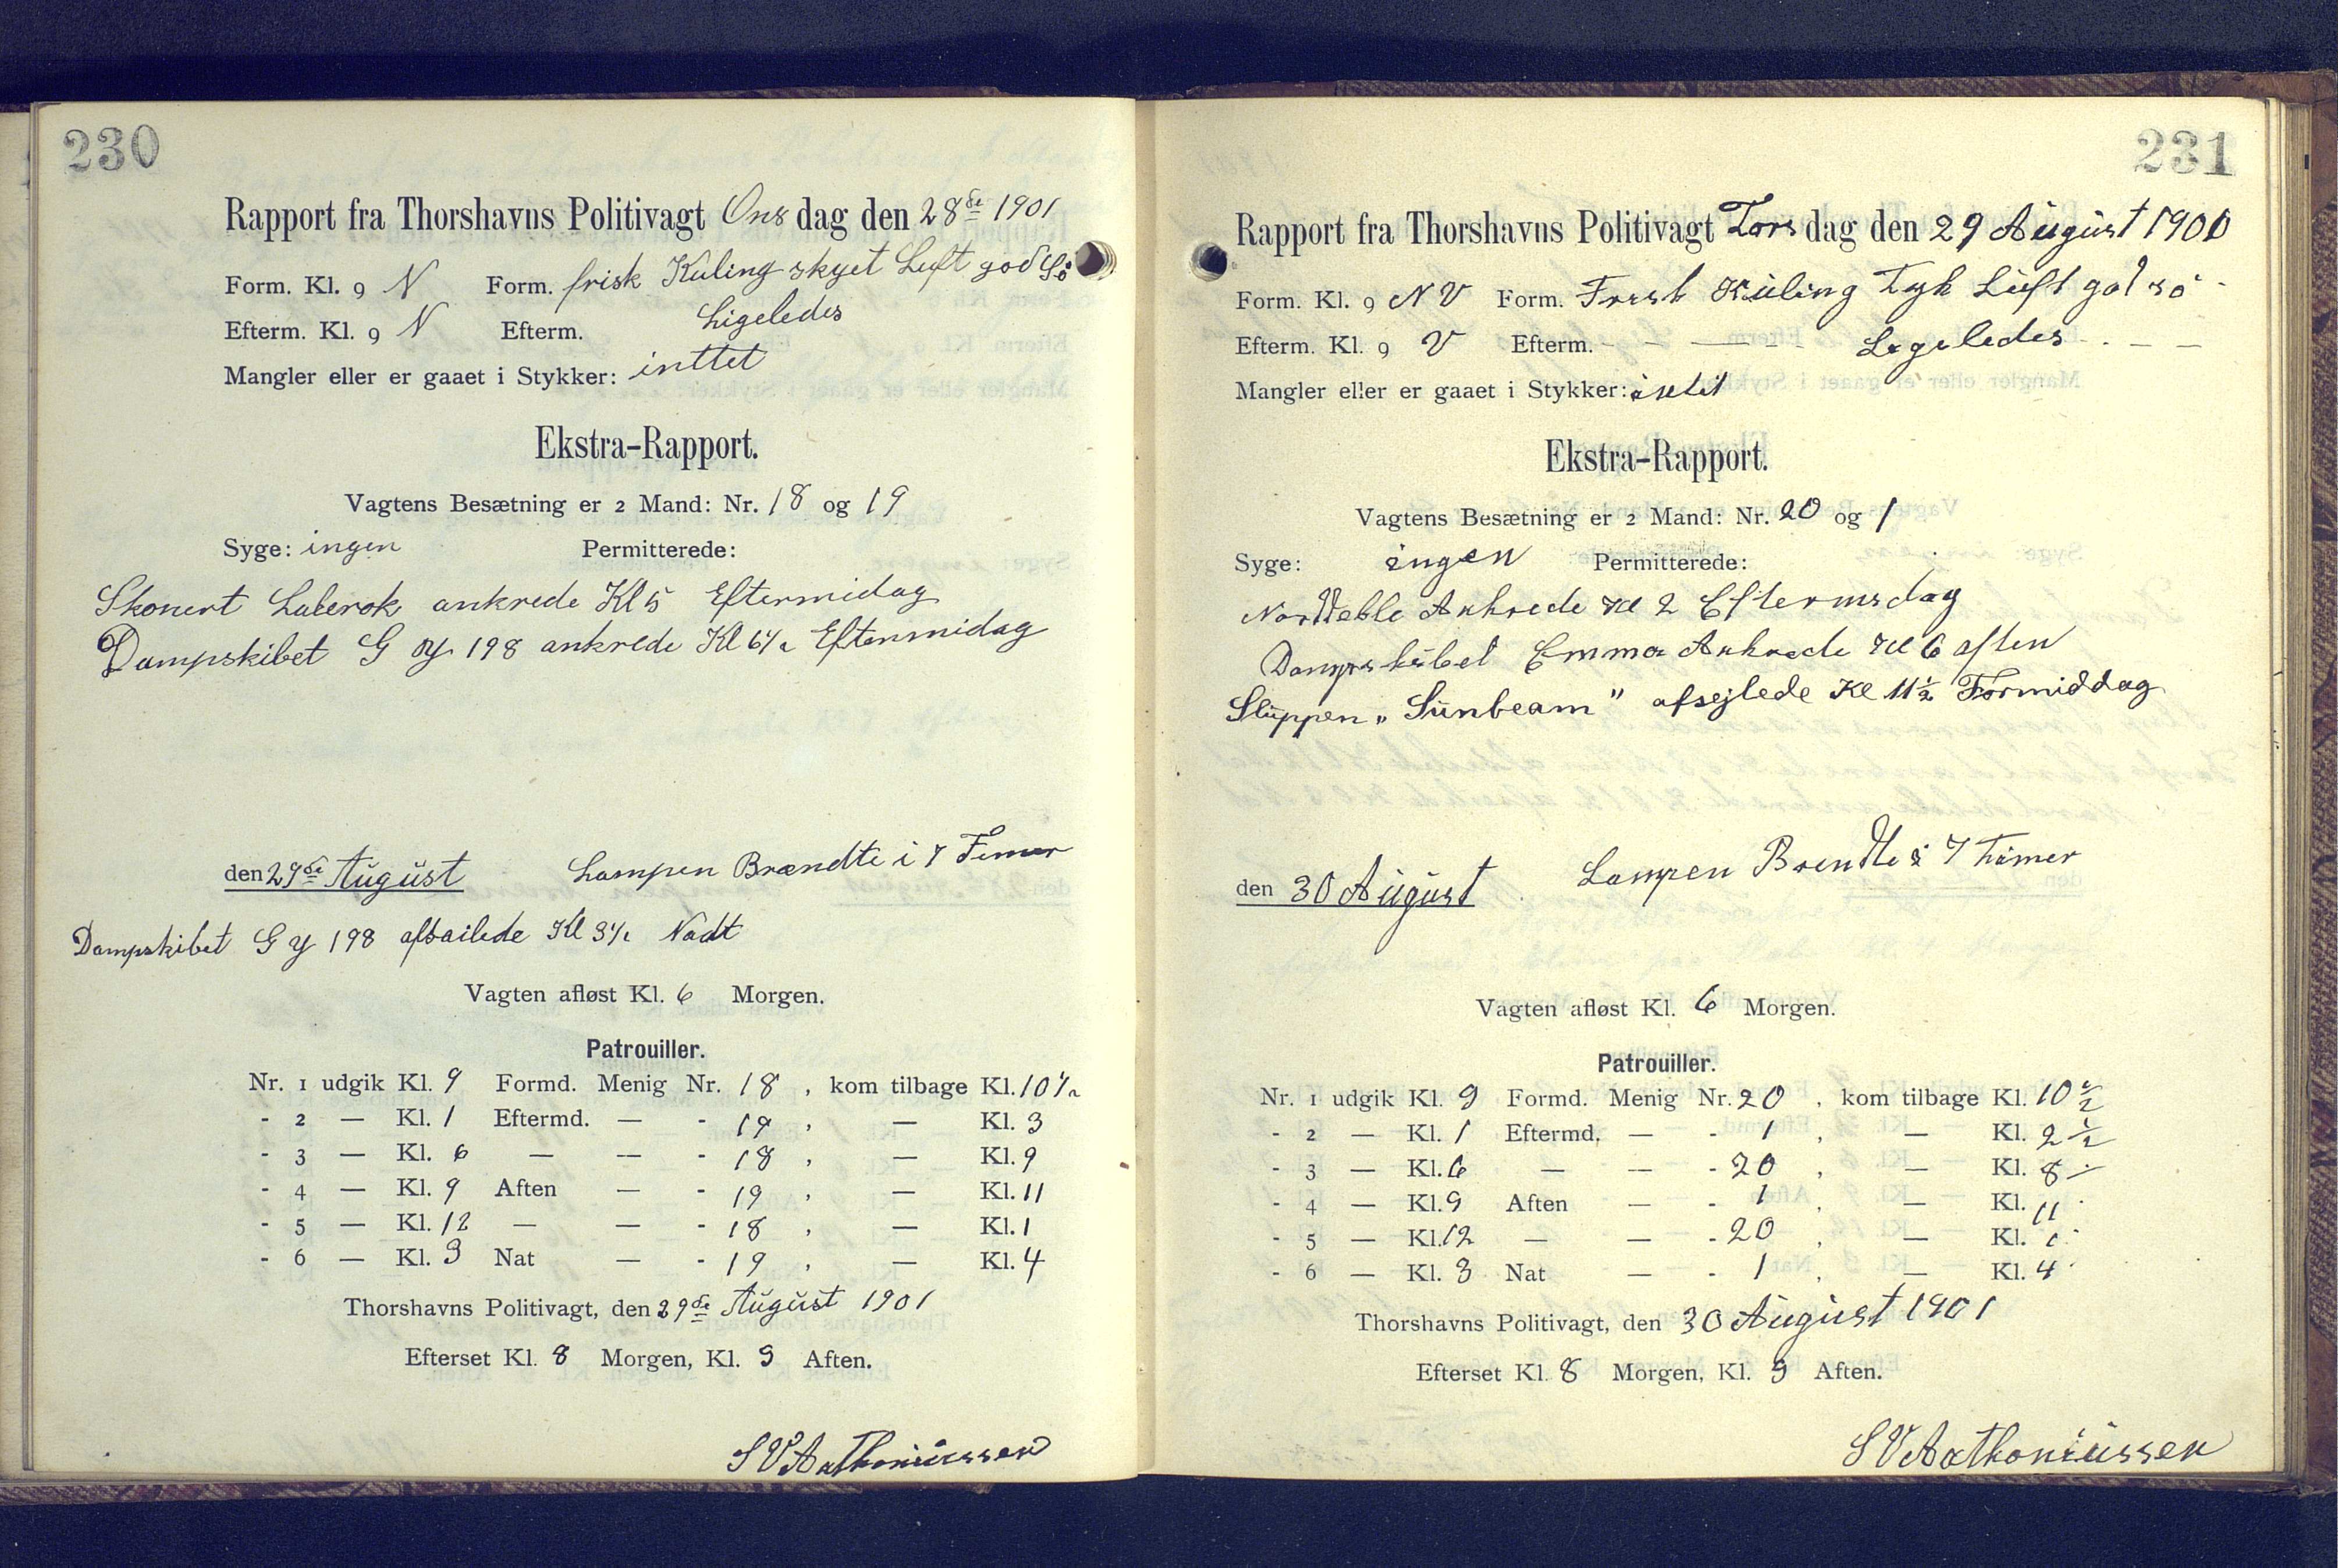 230
Rapport fra Thorshavns Politivagt Onsdag den 28de 1901
Form. Kl. 9 N Form. frisk Kuling skyet Luft god Sö
Efterm. Kl. 9 N Efterm. Ligeledes
Mangler eller er gaaet i Stykker: inttet
Ekstra-Rapport.
Vagtens Besætning er 2 Mand: Nr. 18 og 19
Syge: ingen Permitterede:
Skonert Laberok ankrede Kl 5 Eftermidag
Dampskibet G y 198 ankrede Kl 6½ Eftermidag
den 29de August Lampen Brændte i 7 Timer
Dampskibet G y 198 afsailede Kl 3½ Nadt
Vagten afløst Kl. 6 Morgen.
Patrouiller.
Nr. 1 udgik Kl. 9 Formd. Menig Nr. 18, kom tilbage Kl. 10½
- 2 — Kl. 1 Eftermd. — - 19, — Kl. 3
- 3 — Kl. 6 — — - 18, — Kl. 9
- 4 — Kl. 9 Aften — - 19, — Kl. 11
- 5 — Kl. 12 — — - 18, — Kl. 1
- 6 — Kl. 3 Nat — - 19, — Kl. 4
Thorshavns Politivagt, den 29de August 1901
Efterset Kl. 8 Morgen, Kl. 9 Aften.
S V Anthoniussen
231
Rapport fra Thorshavns Politivagt Torsdag den 29 August 1901
Form. Kl. 9 N V Form. Frisk Kuling Tyk Luft god sö
Efterm. Kl. 9 V Efterm. - - - - Ligeledes - - -
Mangler eller er gaaet i Stykker: intet
Ekstra-Rapport.
Vagtens Besætning er 2 Mand: Nr. 20 og 1
Syge: ingen Permitterede:
Ankrede Kl 2 Eftermsdag
Dampskibet Emma Ankrede Kl 6 aften
Sluppen „Sunbeam" afsejlede Kl 11½ Formiddag
den 30 August Lampen Brendte i 7 Timer
Vagten afløst Kl. 6 Morgen.
Patrouiller.
Nr. 1 udgik Kl. 9 Formd. Menig Nr. 20, kom tilbage Kl. 10½
- 2 — Kl. 1 Eftermd. — - 1, — Kl. 2½
- 3 — Kl. 6 — — - 20, — Kl. 8
- 4 — Kl. 9 Aften — - 1, — Kl. 11
- 5 — Kl. 12 — — - 20, — Kl. 1
- 6 — Kl. 3 Nat — - 1, — Kl. 4
Thorshavns Politivagt, den 30 August 1901
Efterset Kl. 8 Morgen, Kl. 9 Aften.
S V Anthoniussen